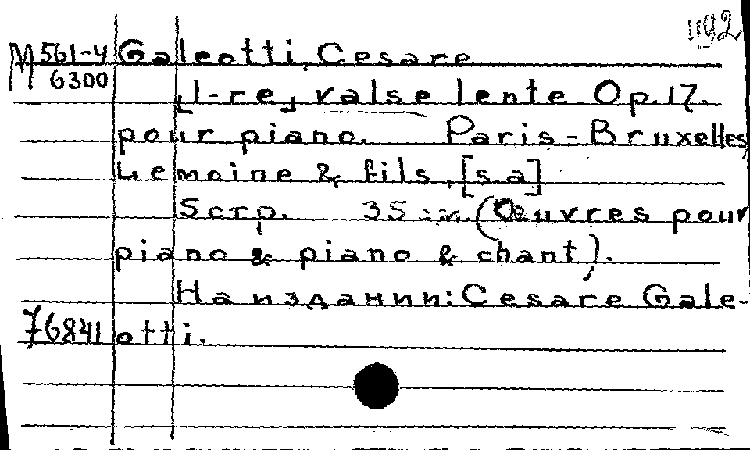 1192
М 561-4 Galeotti, Cesare
6300
[1-re] valse lente Op.17.
pour piano. Paris-Bruxelles,
Lemoine & fils, [s.a]
5 стр. 35 см (Œuvres pour
piano & piano & chant).
На издании: Cesare Gale-
76841 otti.